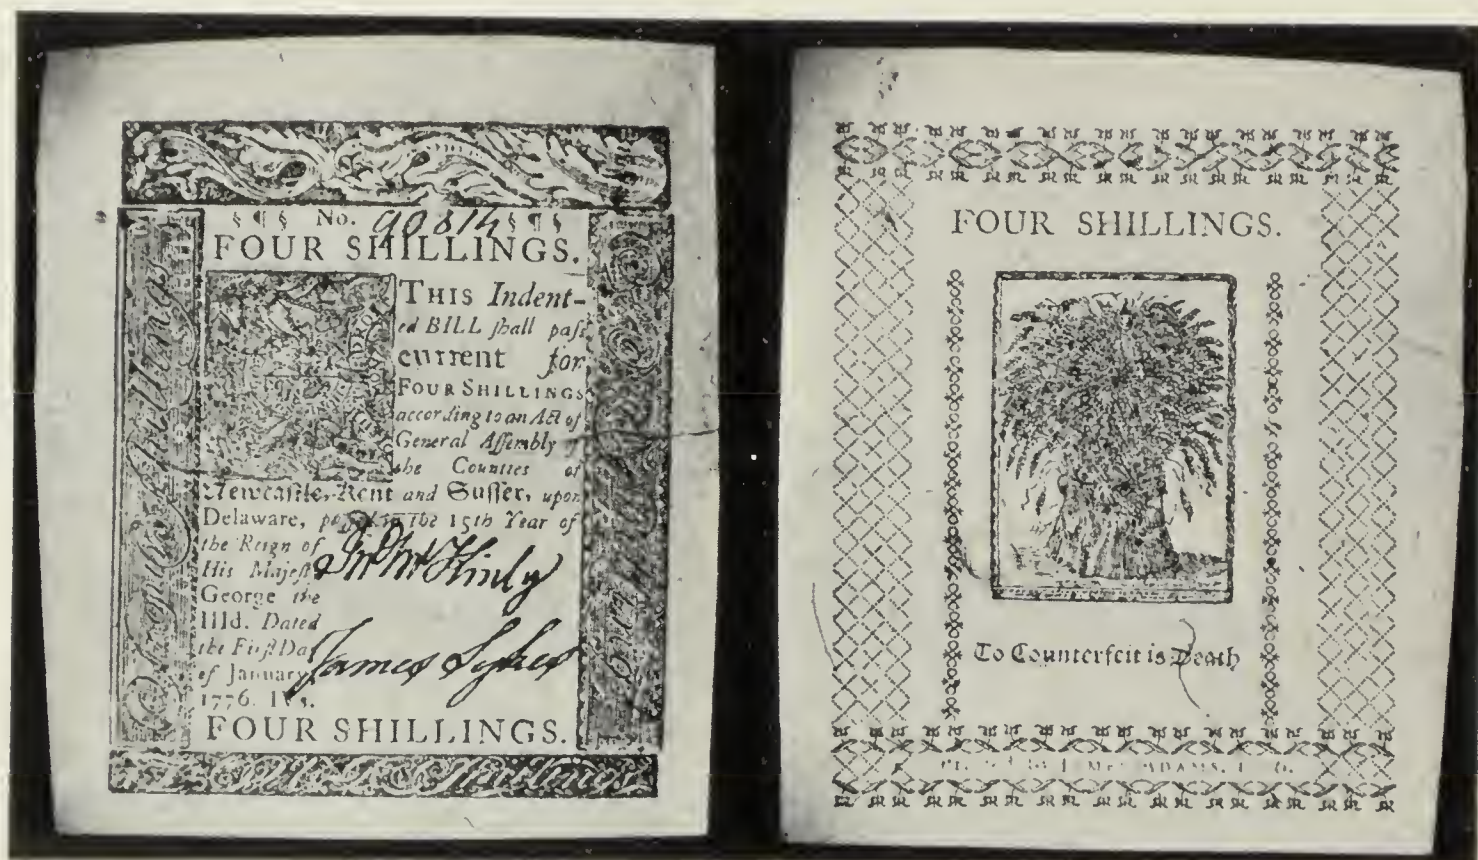 § ¶ § No. 90814 § ¶ §
FOUR SHILLINGS.
THIS Indent-
ed BILL ſhall paſs
current for
FOUR SHILLINGS
according to an Act of
General Aſſembly of
the Counties of
Newcaſtle, Kent and Suſſex, upon
Delaware, paſſed in the 15th Year of
the Reign of
His Majeſty
George the
IIId. Dated
the Firſt Day
of January
1776.
Jno McKinly
James Sykes
FOUR SHILLINGS.
Four Shillings
Shillings
FOUR SHILLINGS.
To Counterfeit is Death
ADAMS,